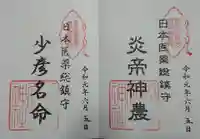 日本医薬総鎮守
炎帝神農
令和元年六月五日
日本医薬総鎮守
少彦名命
令和元年六月五日